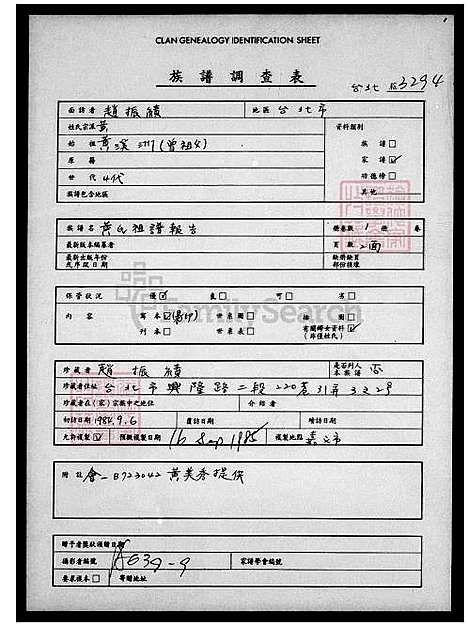 CLAN GENEALOGY IDENTIFICATION SHEET
族譜調查表
台北 3294
面訪者 趙振績 地區 台北市
姓氏宗派 黃 資料類別
始祖 黃溪洲(曾祖父) 族譜□
原籍 家譜☑
世代 4代 功德榜□
族譜包含地區 其他
族譜名 黃氏祖譜報告 冊卷數 1 冊 卷
最新版本編纂者 頁數 2面
最新出版年份 缺冊缺頁
或序說日期 部份損壞
保管狀況 優☑ 良□ 可□ 劣□
FamilySearch
內容 寫本☑(影印) 世系圖□ 排測□
刊本□ 世系表□ 有關婦女資料☑
(非僅姓氏)
珍藏者 趙振績 是否列入本族譜 否
珍藏者住址 台北市興隆路二段220巷31弄3之2号
珍藏者在(家)宗族中之地位 介紹者
初訪日期 1984.9.6 覆訪日期 續訪日期
允許複製☑ 預擬複製日期 16 Sep 1985 複製地點 嘉义市
附註 會一B723042 黃美秀提供
贈予者獎狀頒贈日期
攝影者編號 A639-9 家譜學會編號
要求複本□ 寄贈地址